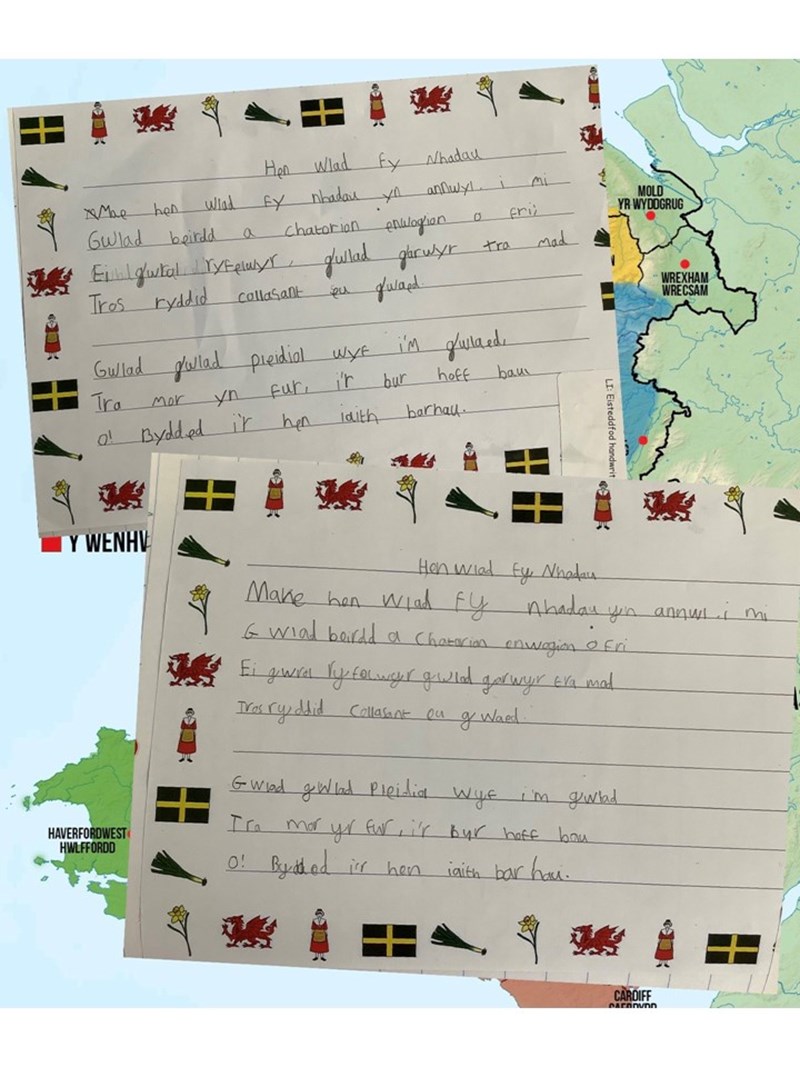 Hen Wlad Fy Nhadau
Mae hen wlad fy nhadau yn annwyl i mi
Gwlad beirdd a chatorion enwogion o fri;
Ei gwral ryfelwyr, gwlad garwyr tra mad
Tros ryddid collasant eu gwaed.
Gwlad gwlad pleidiol wyf i'm gwlaed,
Tra mor yn fur, i'r bur hoff bau
O! Bydded i'r hen iaith barhau.
LI: Eisteddfod handwrit
MOLD
YR WYDDGRUG
WREXHAM
WRECSAM
Y WENHV
Hen Wlad Fy Nhadau
Make hen wlad fy nhadau yn annwl i mi
Gwlad beirdd a chatorion enwogion o fri
Ei gwrol ryfelwyr gwlad garwyr tra mad
Tros ryddid collasant eu gwaed.
Gwlad gwlad pleidiol wyf i'm gwlad
Tra mor yr fur, i'r bur hoff bau
O! Bydded i'r hen iaith barhau.
HAVERFORDWEST
HWLFFORDD
CARDIFF
CAERDYDD